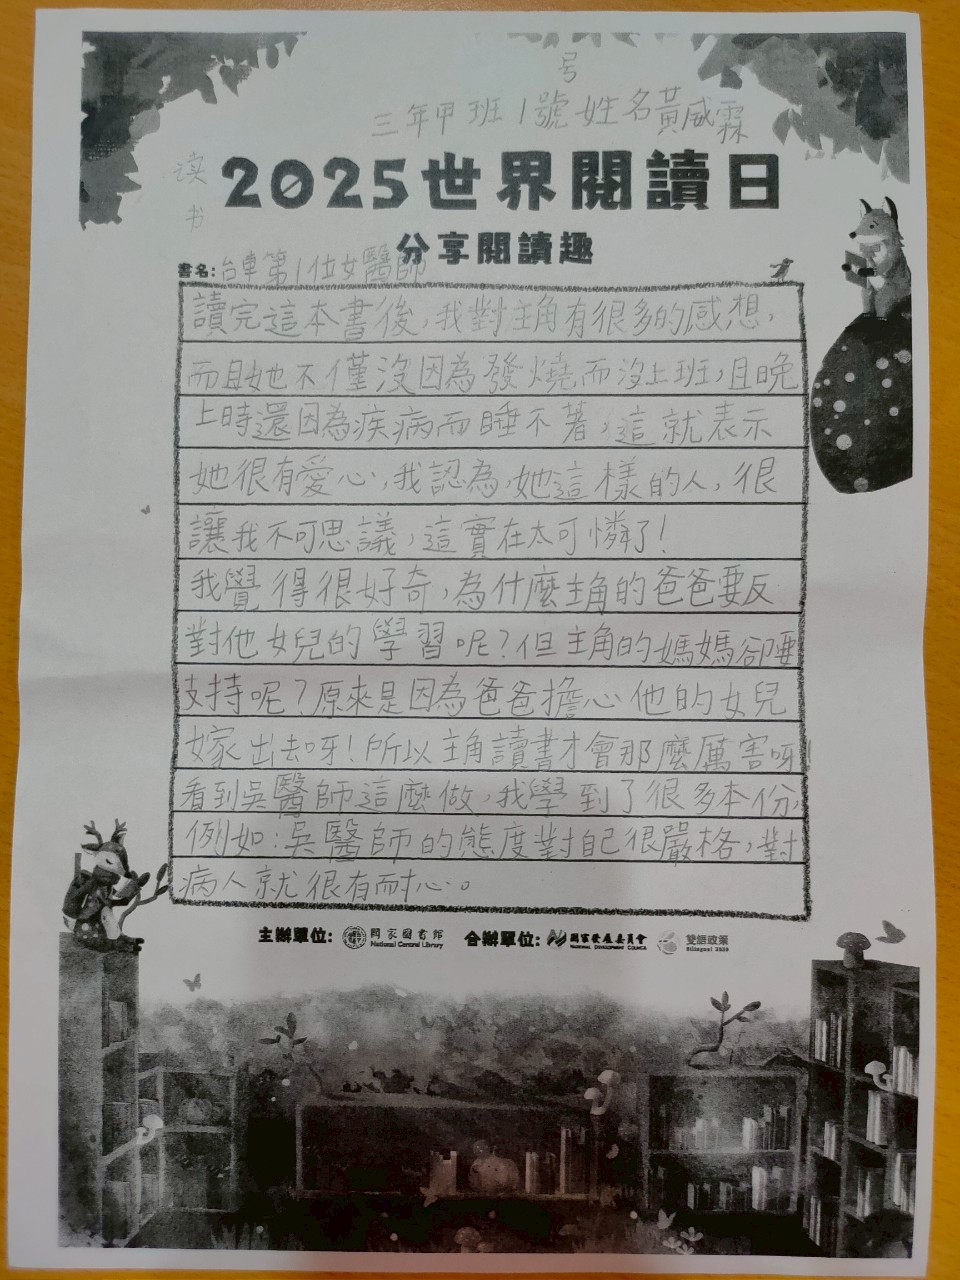 号
三年甲班1號姓名黃威霖
读
书
2025世界閱讀日
分享閱讀趣
書名:台車第1位女醫師
讀完這本書後,我對主角有很多的感想,
而且她不僅沒因為發燒而沒上班,且晚
上時還因為疾病而睡不著,這就表示
她很有愛心,我認為,她這樣的人,很
讓我不可思議,這實在太可憐了!
我覺得很好奇,為什麼主角的爸爸要反
對他女兒的學習呢?但主角的媽媽卻要
支持呢?原來是因為爸爸擔心他的女兒
嫁出去呀!所以主角讀書才會那麼厲害呀!
看到吳醫師這麼做,我學到了很多本份,
例如:吳醫師的態度對自己很嚴格,對
病人就很有耐心。
主辦單位: 國家圖書館 National Central Library 合辦單位: 國家發展委員會 NATIONAL DEVELOPMENT COUNCIL 雙語政策 Bilingual 2030